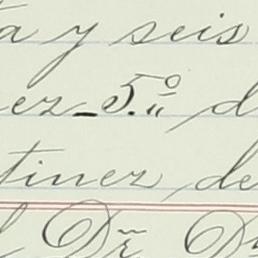 ta y seis
ez_5.º d
tinez de
l Dr. Dr